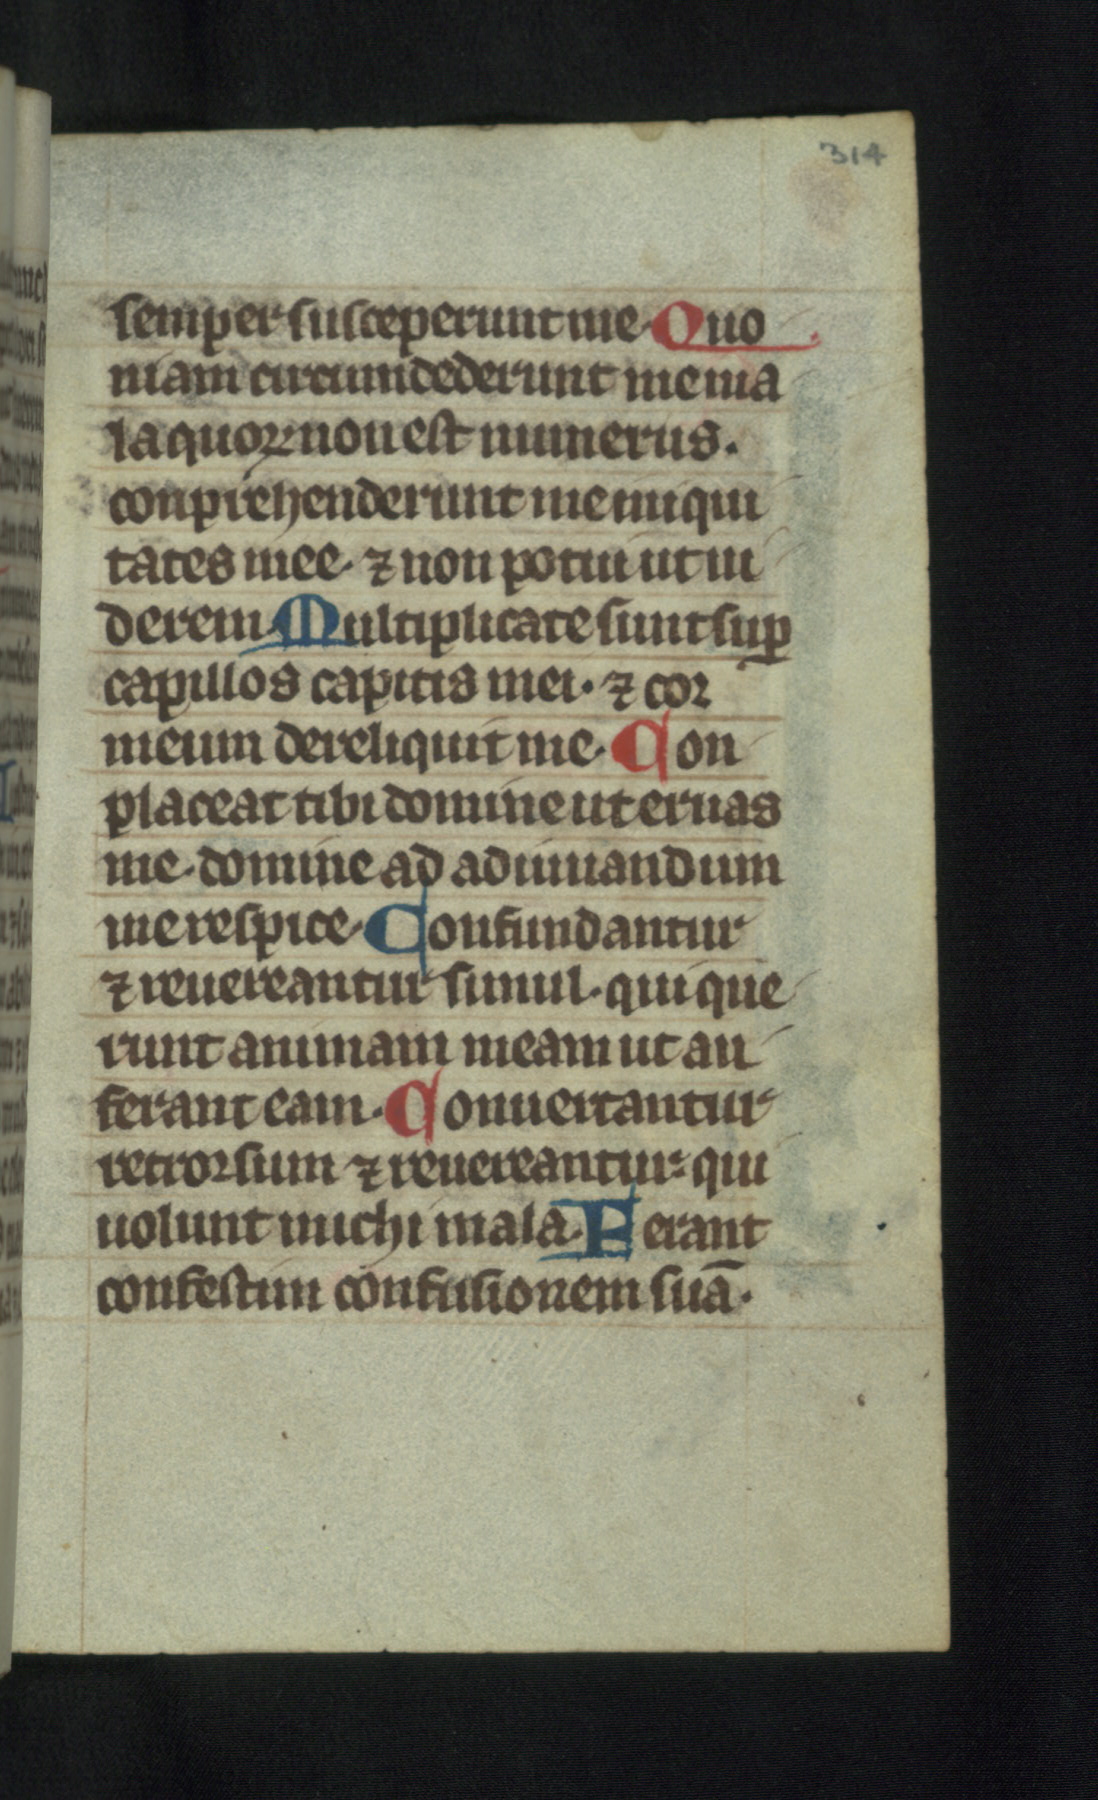 314
semper susceperunt me. Quo
niam circumdederunt me ma
la quoꝝ non est numerus.
conprehenderunt me iniqui
tates mee. ⁊ non potui ut ui
derem. Multiplicate sunt suꝑ
capillos capitis mei. ⁊ cor
meum dereliquit me. Con
placeat tibi domine ut eruas
me. domine ad adiuuandum
me respice. Confundantur
⁊ reuereantur simul. qui que
runt animam meam ut au
ferant eam. Conuertantur
retrorsum ⁊ reuereantur: qui
uolunt michi mala. Ferant
confestim confusionem suā.